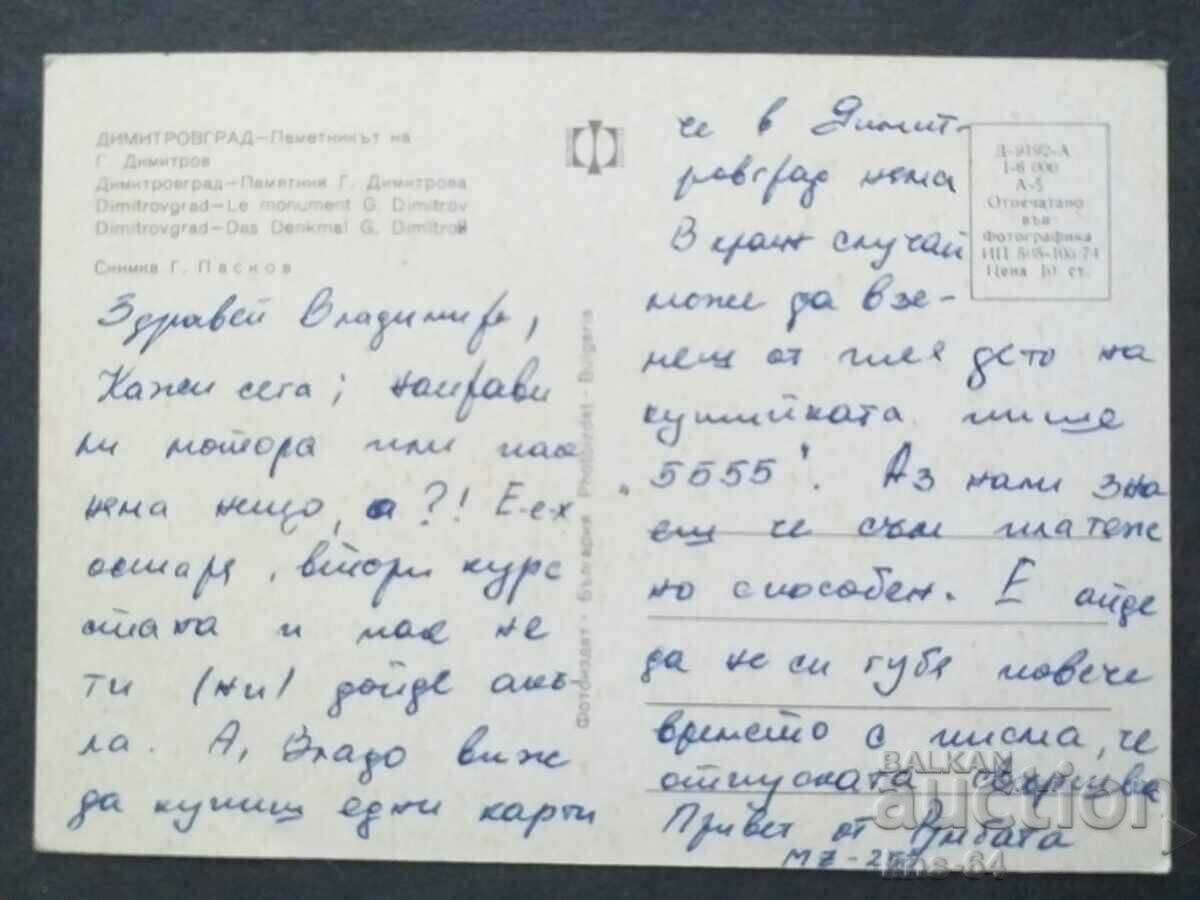 ДИМИТРОВГРАД—Паметникът на
Г. Димитров
Димитровград—Памятник Г. Димитрова
Dimitrovgrad—Le monument G. Dimitrov
Dimitrovgrad—Das Denkmal G. Dimitroff
Снимка Г. Пасков
Здравей Владимире,
Кажи сега, направи
ли мотора или пак
нема нищо, а?! Е-е-х
остаря, втори курс
стана и пак не
ти (ни) дойде акъ-
ла. А, Владо виж
да купиш едни карти
Фотоиздат - България Photoizdat - Bulgaria
че в Димит-
ровград нема
В краен случай
може да взе-
неш от тия дето на
кутийката пише
„5555". Аз нали зна
еш че съм платеж
но способен. Е айде
да не си губя повече
времето с писма, че
отпуската свършва
Привет от
MZ-25
Д-9192-А
1-6 000
А-5
Отпечатано
във
Фотографика
Цена 10 ст.
BALKAN
auction
lins-64